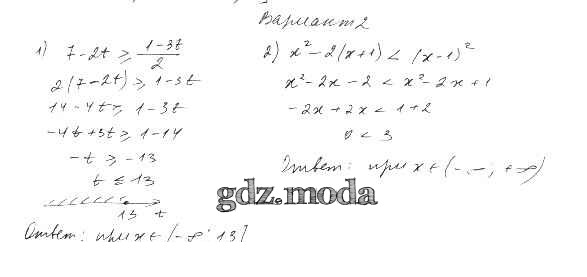 Вариант 2
1) 7-2t ≥ (1-3t)/2
2(7-2t) ≥ 1-3t
14-4t ≥ 1-3t
-4t+3t ≥ 1-14
-t ≥ -13
t ≤ 13
13 t
Ответ: при x ∈ (-∞; 13]
2) x²-2(x+1) < (x-1)²
x²-2x-2 < x²-2x+1
-2x+2x < 1+2
0 < 3
Ответ: при x ∈ (-∞; +∞)
gdz.moda